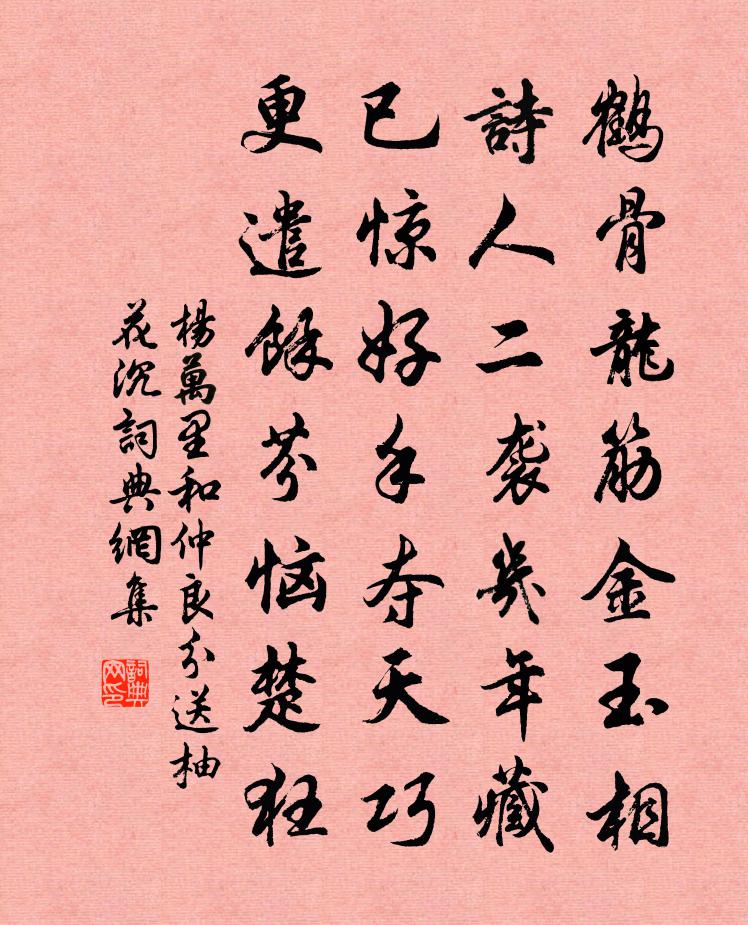 鹤骨龍筋金玉相
詩人二袭幾年藏
已惊好手夺天巧
更遣餘芬恼楚狂
楊萬里和仲良分送柚
花沉詞典網集
詞典
网印